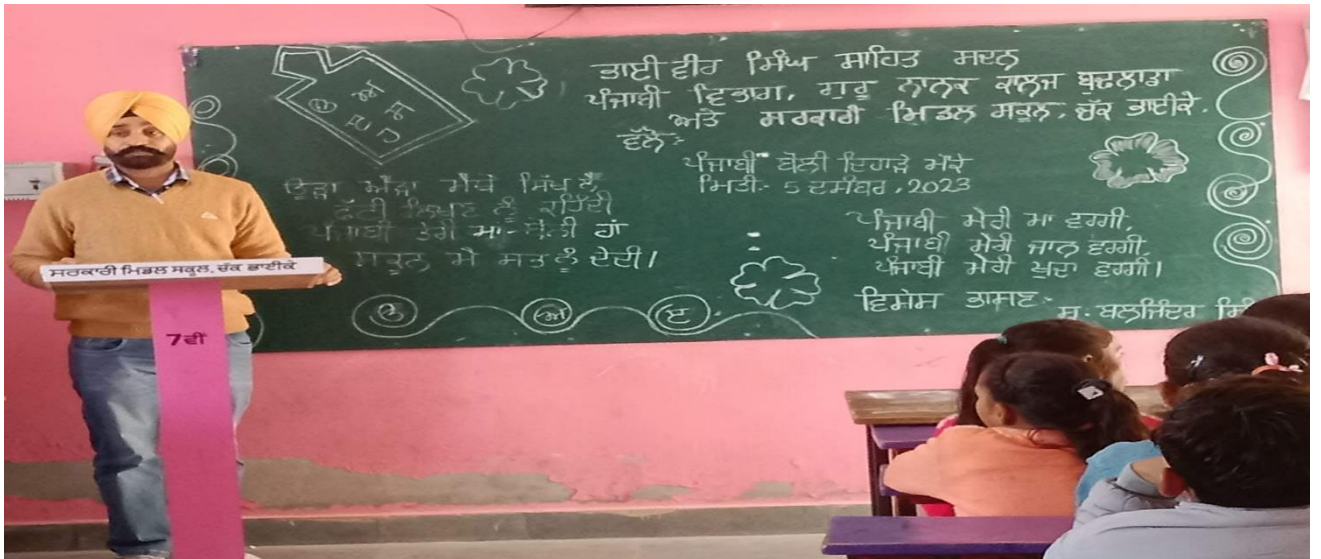 ਭਾਈ ਵੀਰ ਸਿੰਘ ਸਾਹਿਤ ਸਦਨ
ਪੰਜਾਬੀ ਵਿਭਾਗ, ਗੁਰੂ ਨਾਨਕ ਕਾਲਜ ਬੁਢਲਾਡਾ
ਅਤੇ ਸਰਕਾਰੀ ਮਿਡਲ ਸਕੂਲ, ਚੱਕ ਭਾਈਕੇ.
ਵੱਲੋਂ :-
ਪੰਜਾਬੀ ਬੋਲੀ ਦਿਹਾੜੇ ਮੌਕੇ
ਮਿਤੀ:- 5 ਦਸੰਬਰ, 2023
ੳ ਅ
ੲ ਸ
ਹ
ਊੜਾ ਐੜਾ ਮੈਥੋਂ ਸਿੱਖ ਲੈ
ਫੱਟੀ ਲਿਖਣ ਨੂੰ ਕਹਿੰਦੀ
ਪੰਜਾਬੀ ਤੇਰੀ ਮਾਂ-ਬੋਲੀ ਹਾਂ
ਸਕੂਨ ਮੈਂ ਸਭ ਨੂੰ ਦੇਂਦੀ।
ਪੰਜਾਬੀ ਮੇਰੀ ਮਾਂ ਵਰਗੀ,
ਪੰਜਾਬੀ ਮੇਰੀ ਜਾਨ ਵਰਗੀ,
ਪੰਜਾਬੀ ਮੇਰੀ ਖੁਦਾ ਵਰਗੀ।
ਵਿਸ਼ੇਸ਼ ਭਾਸ਼ਣ:-
ਸ. ਬਲਜਿੰਦਰ
ੳ ਅ ੲ
ਸਰਕਾਰੀ ਮਿਡਲ ਸਕੂਲ, ਚੱਕ ਭਾਈਕੇ
7ਵੀਂ